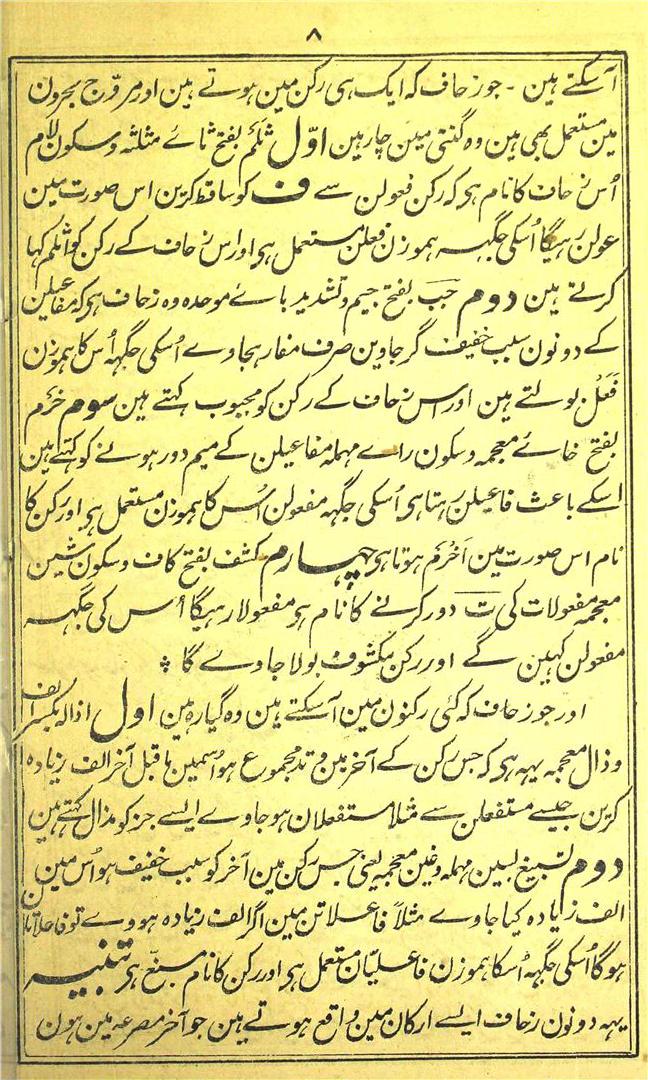 ۸
آسکتے ہین - جو زحاف کہ ایک ہی رکن مین ہوتے ہین اور مروّج بحرون
مین مستعمل بھی ہین وہ گنتی مین چار ہین اوّل ثَلَم بفتح ثائے مثلثہ و سکون لام
اُس زحاف کا نام ہی کہ رکن فعولن سے ف کو ساقط کرین اس صورت مین
عولن رہیگا اُسکی جگہہ ہموزن فعلن مستعمل ہی اور اس زحاف کے رکن کو اثلم کہا
کرتے ہین دوم جَبّ بفتح جیم و تشدید بائے موحدہ وہ زحاف ہی کہ مفاعیلن
کے دونون سبب خفیف گر جاوین صرف مفا رہجاوے اُسکی جگہہ اُس کا ہموزن
فَعَل بولتے ہین اور اس زحاف کے رکن کو مجبوب کہتے ہین سوم خرم
بفتح خائے معجمہ و سکون رائے مہملہ مفاعیلن کے میم دور ہونے کو کہتے ہین
اسکے باعث فاعیلن رہتا ہی اُسکی جگہہ مفعولن اُس کا ہموزن مستعمل ہی اور رکن کا
نام اس صورت مین اَخرَم ہوتا ہی چہارم کشف بفتح کاف و سکون شین
معجمہ مفعولات کی ت دور کرنے کا نام ہی مفعولا رہیگا اُس کی جگہہ
مفعولن کہین گے اور رکن مکشوف بولا جاوے گا ؞
اور جو زحاف کہ کئی رکنون مین آسکتے ہین وہ گیارہ ہین اول اذالہ بکسر الف
و ذال معجمہ یہہ ہی کہ جس رکن کے آخر مین وتد مجموع ہو اُسمین ماقبل آخر الف زیادہ
کرین جیسے مستفعلن سے مثلا مستفعلان ہو جاوے ایسے جز کو مذال کہتے ہین
دوم تسبیغ بسین مہملہ و غین معجمہ یعنی جس رکن مین آخر کو سبب خفیف ہو اُس مین
الف زیادہ کیا جاوے مثلاً فاعلاتن مین اگر الف زیادہ ہووے تو فاعلاتان
ہوگا اُسکی جگہہ اُسکا ہموزن فاعلیّان مستعمل ہی اور رکن کا نام مسبّغ ہی تنبیہ
یہہ دونون زحاف ایسے ارکان مین واقع ہوتے ہین جو آخر مصرعہ مین ہون